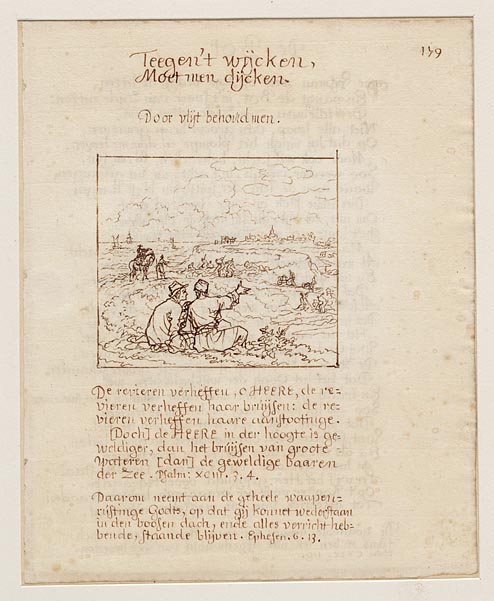 Teegen't wijcken,
Moet men dijcken.
179
Door vlijt behoud men.
De revieren verheffen, o HEERE, de re-
vieren verheffen haar bruijsen: de re-
vieren verheffen haare aanstootinge.
[Doch] de HEERE in der hoogte is ge-
weldiger, dan het bruijsen van groote
wateren [dan] de geweldige baaren
der Zee. Psalm: XCIII. 3. 4.
Daarom neemt aan de geheele waapen-
rustinge Godts, op dat gij konnet wederstaan
in den boosen dach, ende alles verricht heb-
bende, staande blijven. Ephesen. 6. 13.